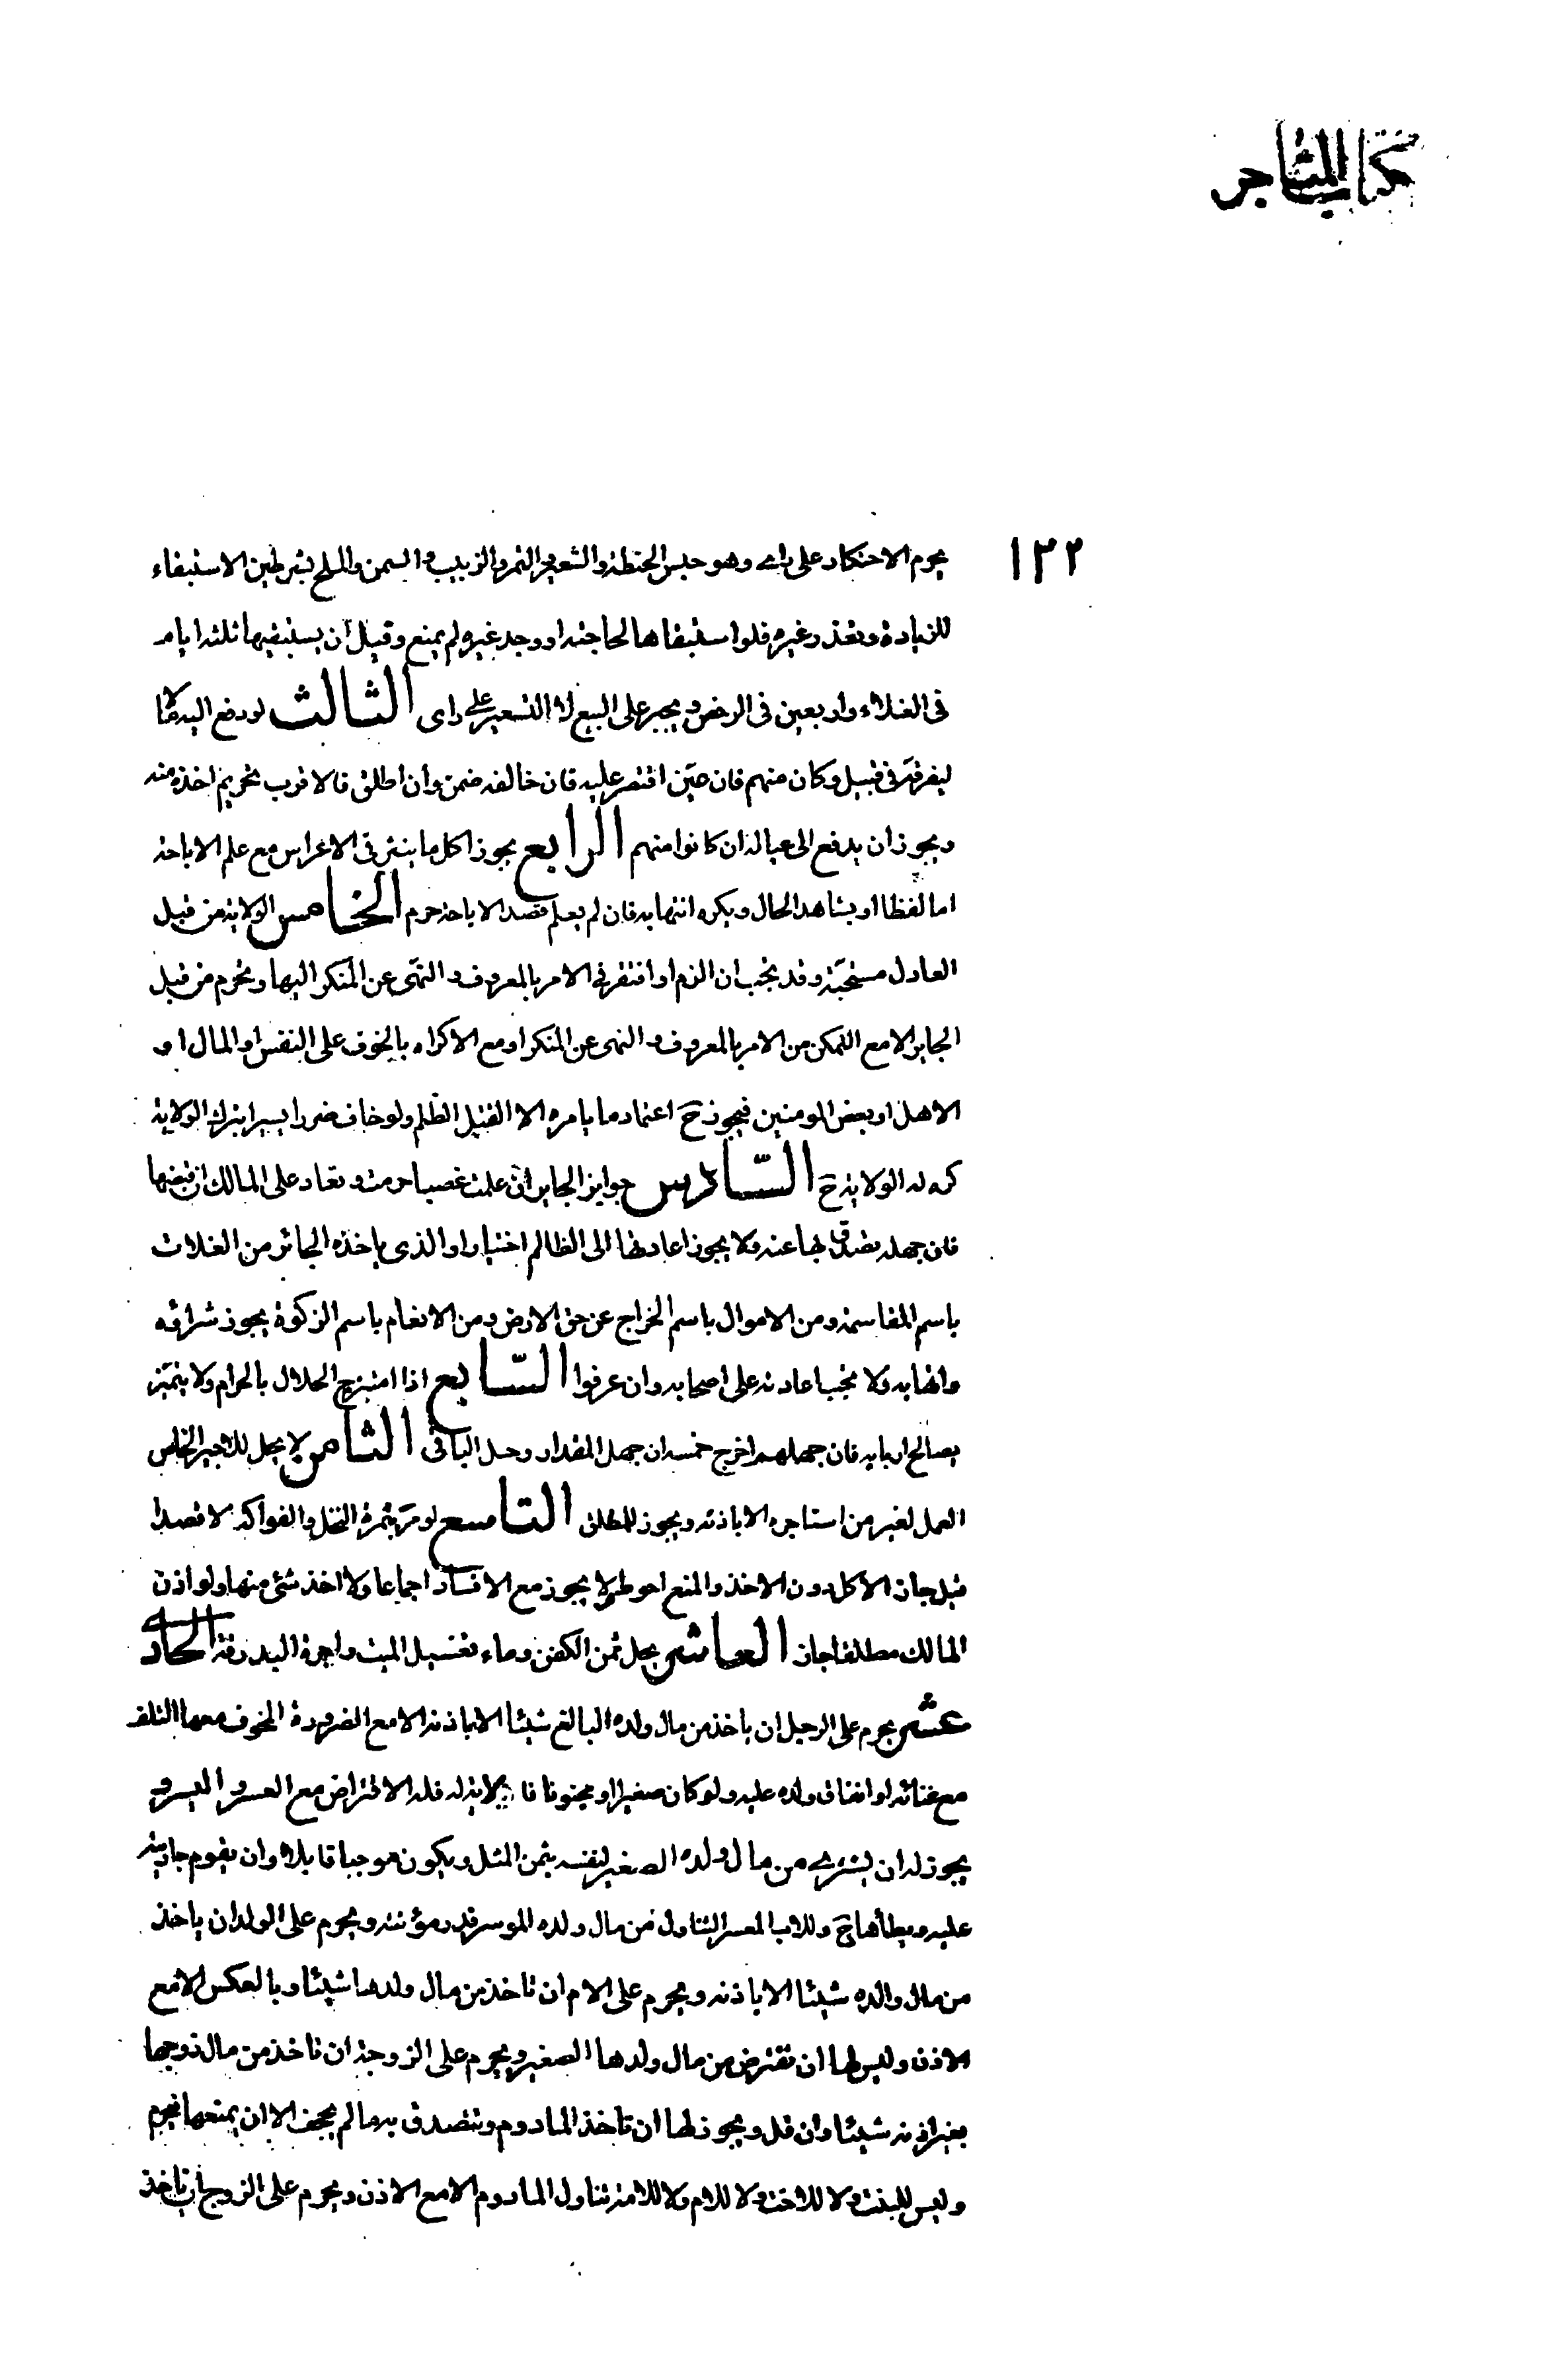 كتاب المتاجر
١٣٢
يحرم الاحتكار على راى وهو حبس الحنطة والشعير والتمر والزبيب والسمن والملح بشرطين الاستبقاء
للزيادة وتعذر غيره فلو استبقاها لحاجته او وجد غيره لم يمنع وقيل ان يستبقيها ثلثة ايام
فى الغلاء واربعين فى الرخص ويجبر على البيع لا التسعير على راى الثالث لو دفع اليه مالا
ليفرقه فى قبيل وكان منهم فان عين اقتصر عليه فان خالف ضمن وان اطلق فالاقرب تحريم اخذه منه
ويجوز ان يدفع الى عياله ان كانوا منهم الرابع يجوز اكل ما ينثر فى الاعراس مع علم الاباحة
اما لفظا او بشاهد الحال ويكره انتهابه فان لم يعلم قصد الاباحة حرم الخامس الولاية من قبل
العادل مستحبة وقد تجب ان الزم او افتقر فى الامر بالمعروف والنهى عن المنكر اليها وتحرم من قبل
الجاير الا مع التمكن من الامر بالمعروف والنهى عن المنكر او مع الاكراه بالخوف على النفس او المال او
الاهل او بعض المومنين فيجوز ح اعتماد ما يامره الا القتل الظلم ولو خاف ضررا يسيرا بترك الولاية
كره له الولاية ح السادس جوايز الجاير ان علمت غصبا حرمت وتعاد على المالك ان قبضها
فان جهله تصدق بها عنه ولا يجوز اعادتها الى الظالم اختيارا والذى ياخذه الجائر من الغلات
باسم المقاسمة ومن الاموال باسم الخراج عن حق الارض ومن الانعام باسم الزكوة يجوز شرائه
واتهابه ولا تجب اعادته على اصحابه وان عرفوا السابع اذا امتزج الحلال بالحرام ولا يتميز
يصالح اربابه فان جهلهم اخرج خمسه ان جهل المقدار وحل الباقى الثامن لا يحل للاجير الخاص
العمل لغير من استاجره الا باذنه ويجوز للمطلق التاسع لو مر بثمرة النخل والفواكه لا قصدا
قيل جاز الاكل دون الاخذ والمنع احوط ولا يجوز مع الافساد اجماعا ولا اخذ شئ منها ولو اذن
المالك مطلقا جاز العاشر يحل ثمن الكفن وماء تغسيل الميت واجرة البدرقة الحادى
عشر يحرم على الرجل ان ياخذ من مال ولده البالغ شيئا الا باذنه الا مع الضرورة المخوف معها التلف
مع غنائه او انفاق ولده عليه ولو كان صغيرا او مجنونا فالولاية له فله الاقتراض مع العسر واليسر و
يجوز له ان يشترى من مال ولده الصغير لنفسه بثمن المثل ويكون موجبا قابلا وان يقوم جاريته
عليه ويطأها ح وللاب المعسر التناول من مال ولده الموسر قدر مؤنته ويحرم على الولد ان ياخذ
من مال والده شيئا الا باذنه ويحرم على الام ان تاخذ من مال ولدها شيئا وبالعكس الا مع
الاذن وليس لها ان تقترض من مال ولدها الصغير ويحرم على الزوجة ان تاخذ من مال زوجها
بغير اذنه شيئا وان قل ويجوز لها ان تاخذ المادوم وتتصدق به ما لم يجحف الا ان يمنعها فيحرم
وليس للبنت ولا للاخت ولا للام ولا للامة تناول المادوم الا مع الاذن ويحرم على الزوج ان ياخذ